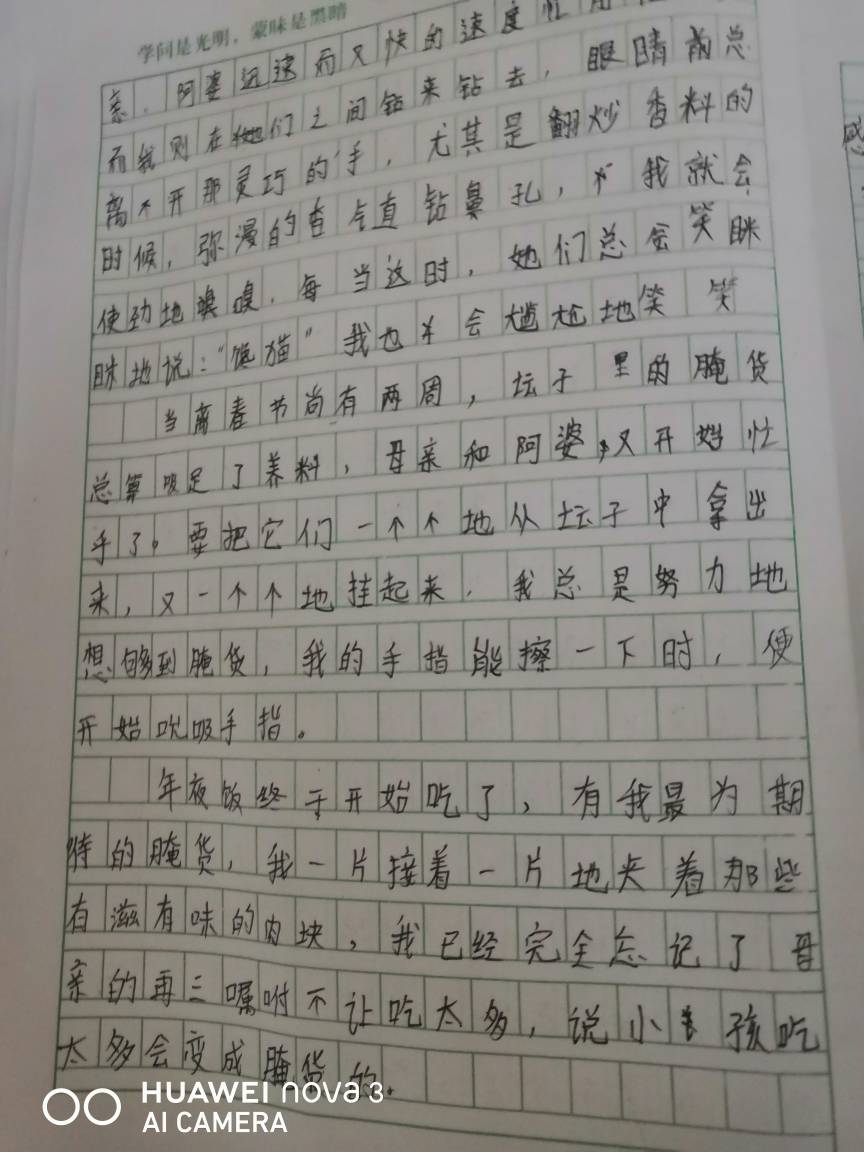 学问是光明，蒙昧是黑暗
亲，阿婆迅速而又快的速度忙
而我则在她们之间钻来钻去，眼睛前总
离不开那灵巧的手，尤其是翻炒香料的
时候，弥漫的香气直钻鼻孔，我就会
使劲地嗅嗅，每当这时，她们总会笑眯
眯地说：“馋猫”我也会尴尬地笑笑
当离春节尚有两周，坛子里的腌货
总算吸足了养料，母亲和阿婆又开始忙
乎了。要把它们一个个地从坛子中拿出
来，又一个个地挂起来，我总是努力地
想够到腌货，我的手指能擦一下时，便
开始吮吸手指。
年夜饭终于开始吃了，有我最为期
待的腌货，我一片接着一片地夹着那些
有滋有味的肉块，我已经完全忘记了母
亲的再三嘱咐不让吃太多，说小孩吃
太多会变成腌货的。
感
HUAWEI nova 3
AI CAMERA